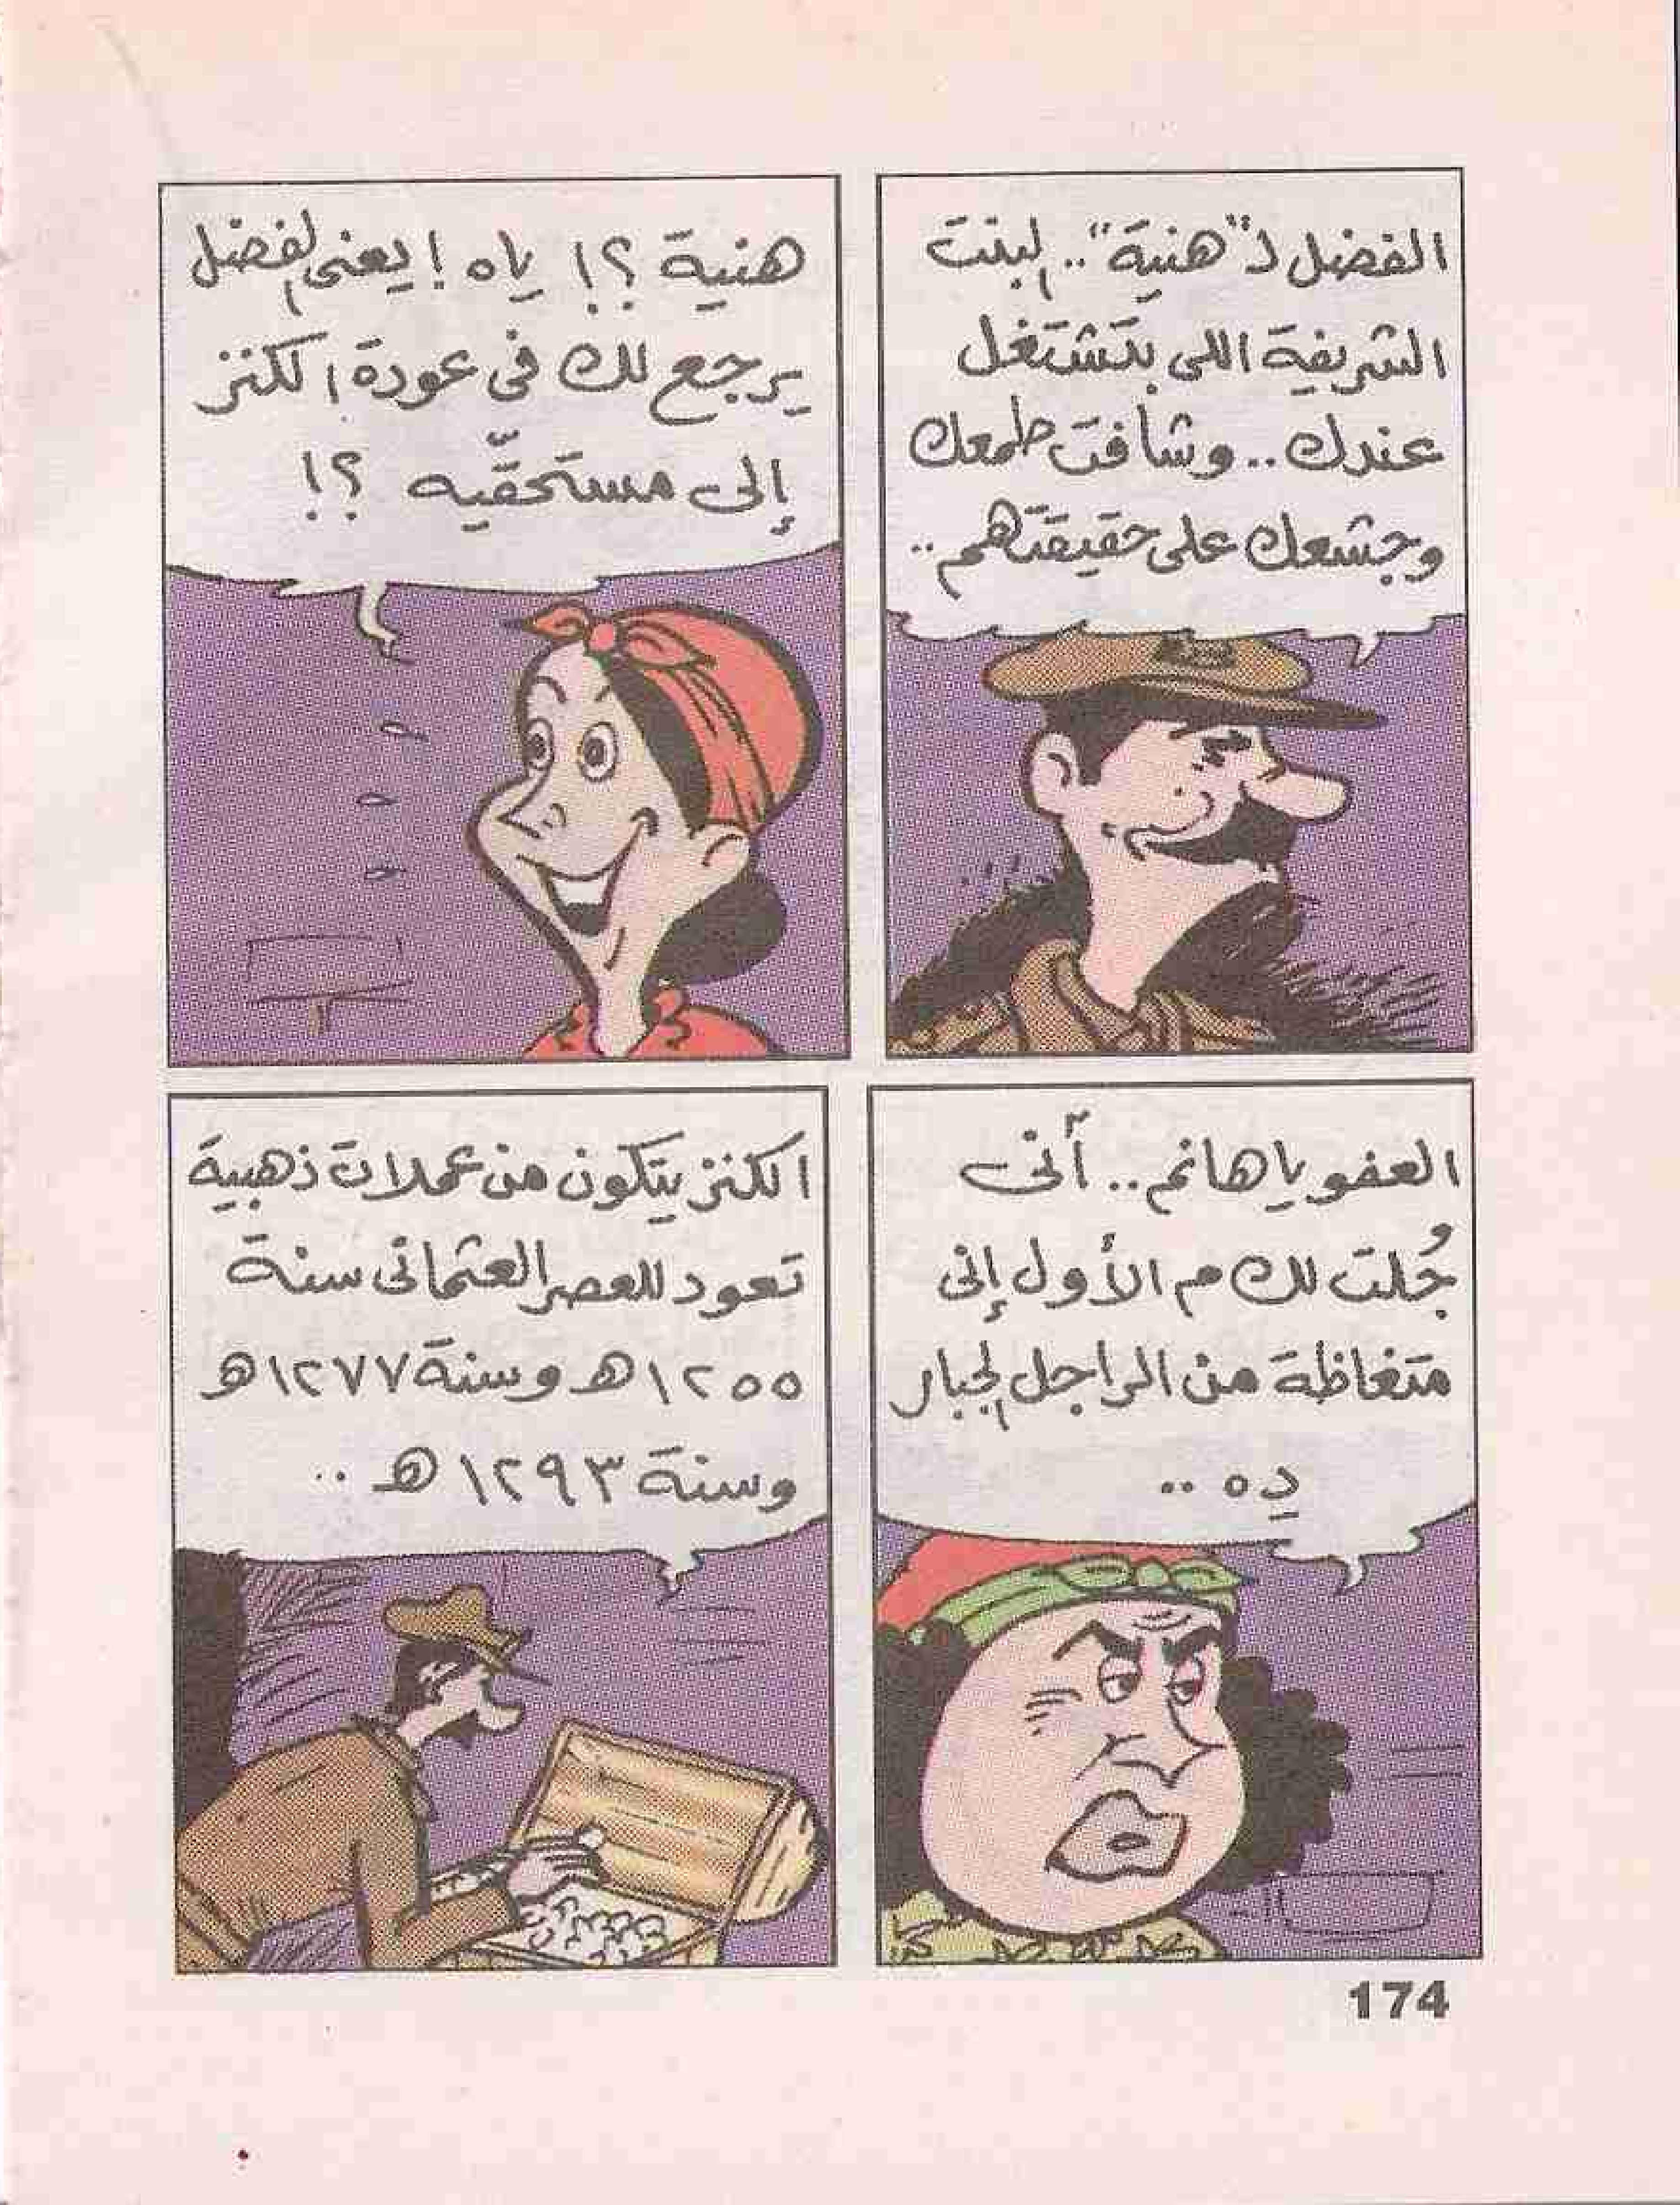 الفضل لـ "هنية".. البنت
الشريفة اللى بتشتغل
عندك.. وشافت طمعك
وجشعك على حقيقتهم..
هنية ؟! ياه ! يعنى الفضل
يرجع لك فى عودة الكنز
إلى مستحقّيه ؟!
العفو يا هانم.. آنى
جُلت لك م الأول إنى
متغاظة من الراجل الجبار
دِه ..
الكنز يتكون من عملات ذهبية
تعود للعصر العثمانى سنة
١٢٥٥هـ وسنة ١٢٧٧هـ
وسنة ١٢٩٣هـ ..
174